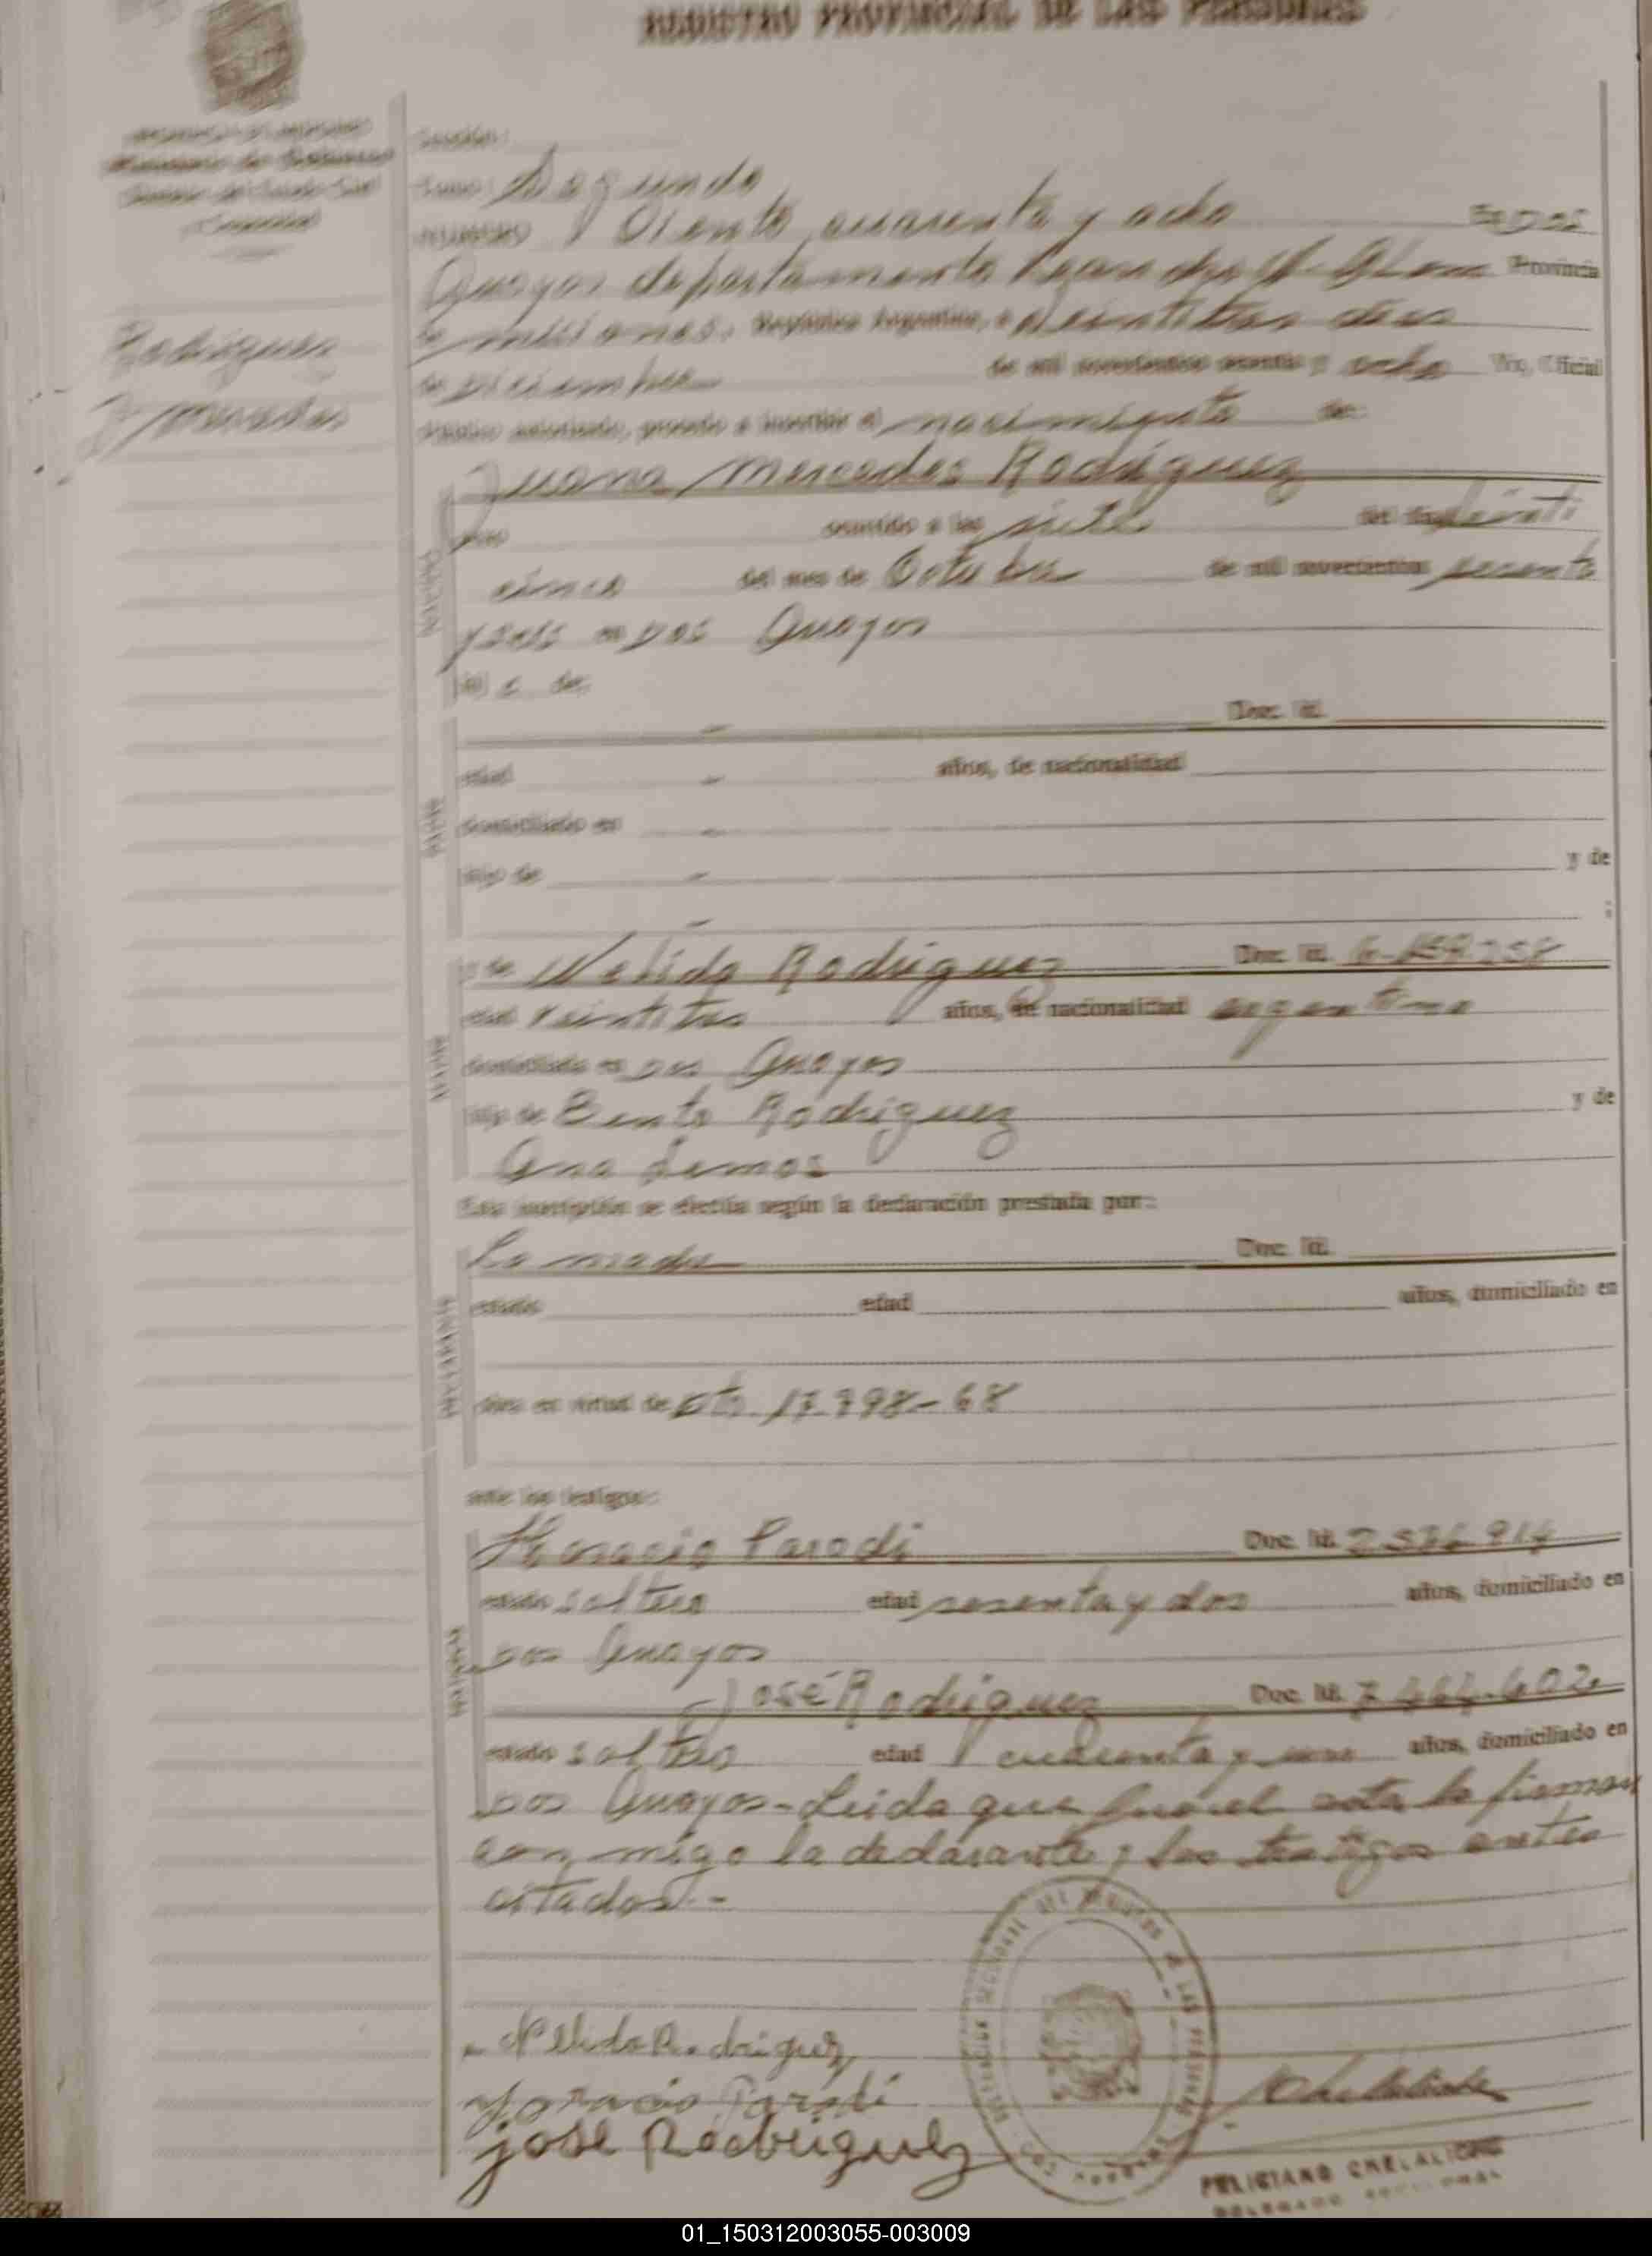 REGISTRO PROVINCIAL DE LAS PERSONAS
Ministerio de Gobierno
Sección:
Tomo: Segundo
NUMERO Ciento cuarenta y ocho En Dos
Arroyos departamento Leandro N. Alem Provincia
de misiones, República Argentina, a veintitres dias
de Diciembre de mil novecientos sesenta y ocho Yo, Oficial
Público autorizado, procedo a inscribir el nacimiento de:
Rodriguez
J. Mercedes
Juana Mercedes Rodriguez
sexo ocurrido a las siete del día veinti
cinco del mes de Octubre de mil novecientos sesenta
y seis en Dos Arroyos
hij a de:
Doc. Id.
edad años, de nacionalidad
domiciliado en
hijo de y de
y de Nelida Rodriguez Doc. Id.
edad veintitres años, de nacionalidad argentina
domiciliada en Dos Arroyos
hija de Bento Rodriguez y de
Ana Lemos
Esta inscripción se efectúa según la declaración prestada por:
La madre Doc. Id.
estado edad años, domiciliado en
obra en virtud de Dto. 17.798-68
ante los testigos:
Horacio Parodi Doc. Id.
estado soltero edad sesenta y dos años, domiciliado en
Dos Arroyos
José Rodriguez Doc. Id.
estado soltero edad cuarenta y uno años, domiciliado en
Dos Arroyos - Leida que fué el acta la firman
con migo la declarante y los testigos antes
citados.-
Nelida Rodriguez
Horacio Parodi
jose Rodriguez
FELICIANO CHELALICHE
01_150312003055-003009